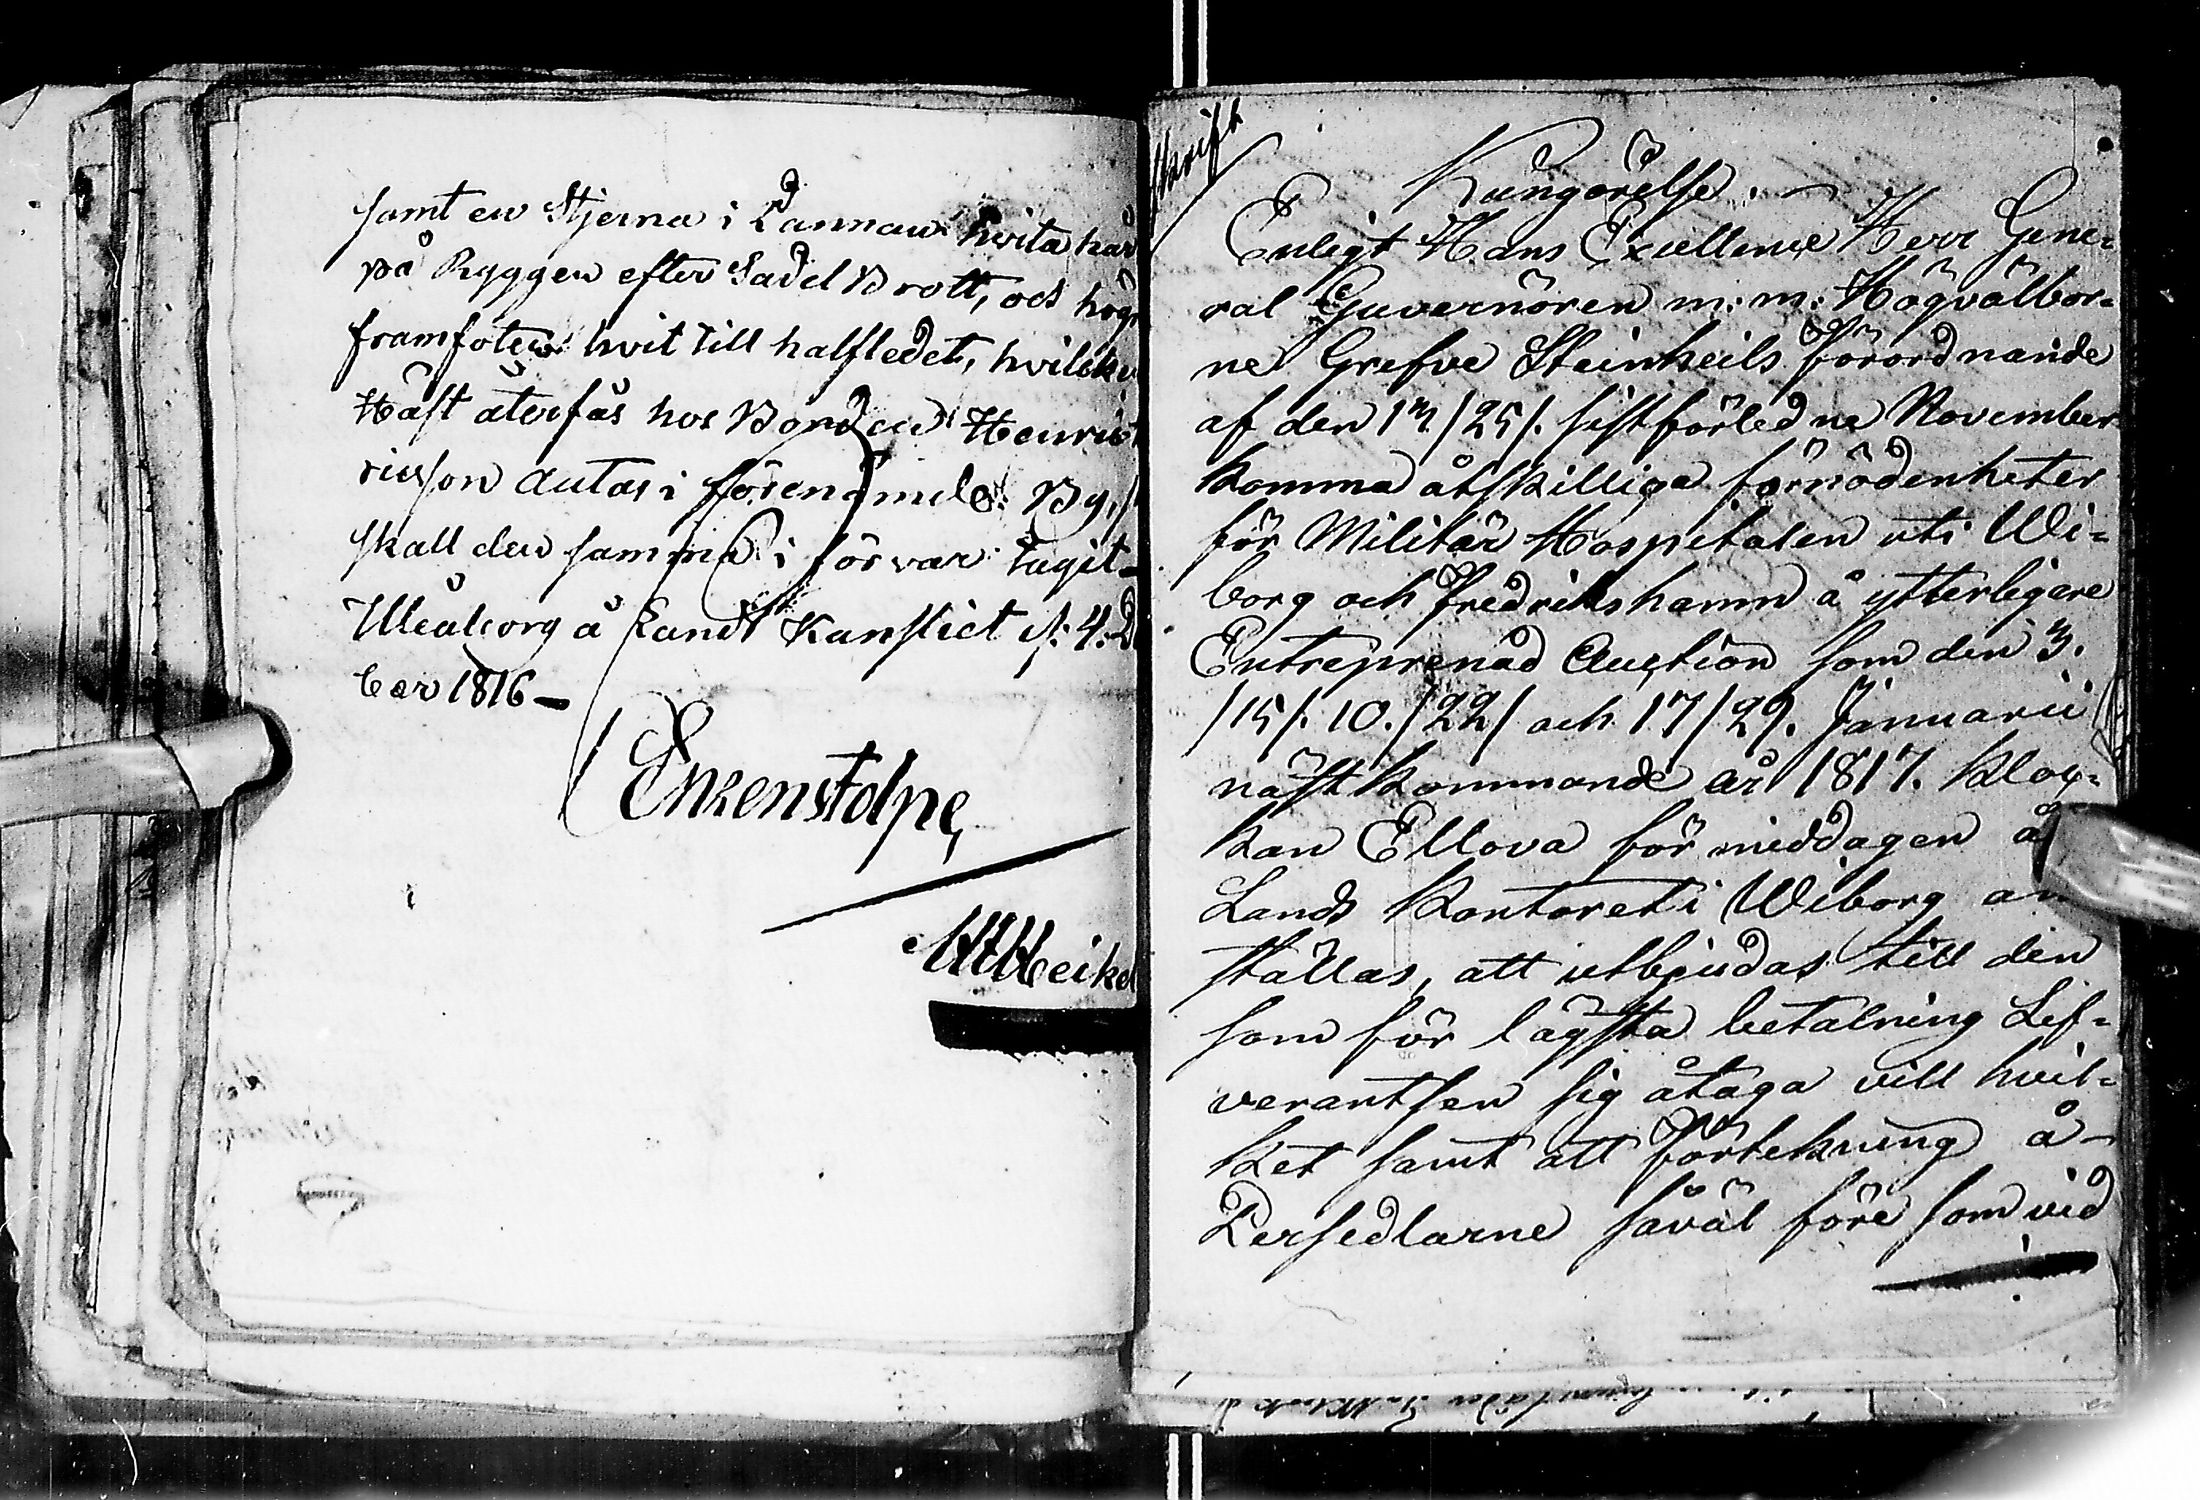 samt en Stjerna i Pannan hvita hår
på Ryggen efter Sadel Brott, och högr
framfoten hvit till halfledet, hvilcke
Häst återfås hos Bonden Henric
ricsson Autas i förenämde By,
skall den samma i förvar tagit
Uleåborg å Lands Kansliet d: 4. D
ber 1816 –
Ehrenstolpe
skrift
Kungörelse.
Enligt Hans Excellence Herr Gene-
ral Guvernören m: m: Högvälbor-
ne Grefve Steinheils förordnande
af den 13/25/. sistförledne November
komma åtskilliga förnödenheter
för Militär Hospitalen uti Wi-
borg och Fredrikshamn å ytterligare
Entreprenad Auction som den 3.
/15/. 10. /22/ och 17/29. Januarii
nästkommande år 1817. Kloc-
kan Ellova för middagen å
Lands Kontoret i Wiborg an
ställas, att utbjudas till den
som för lägsta betalning Lef-
verantsen sig åtaga vill hvil-
ket samt att förtekning å
Persedlarne såväl före som vid